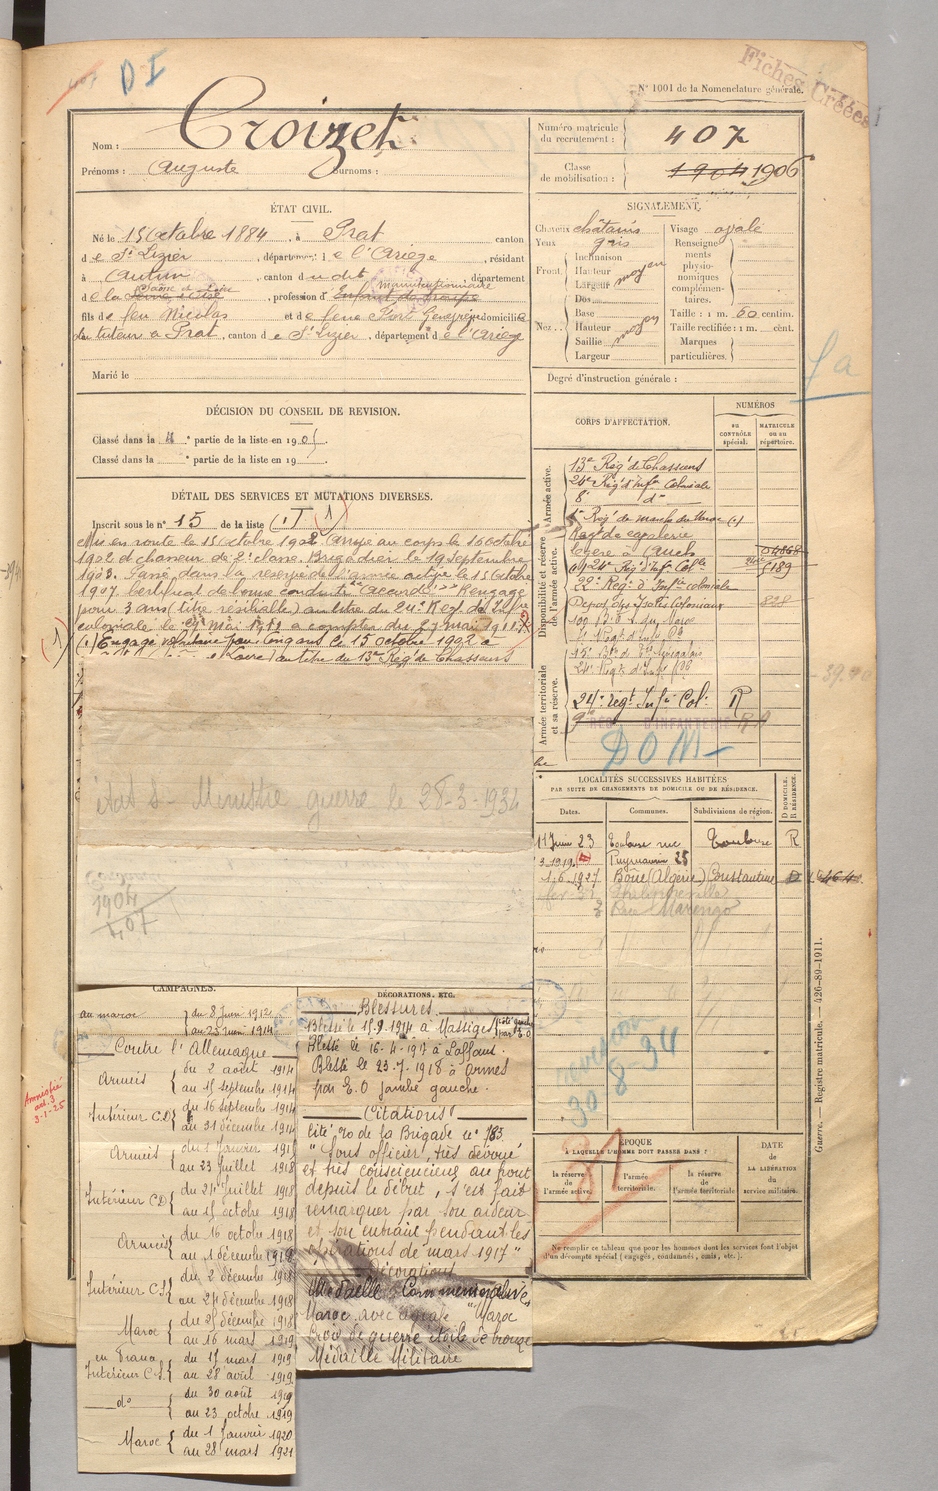 D I
Fiches Créées
N° 1001 de la Nomenclature générale.
Nom : Croizet
Prénoms : Auguste Surnoms :
Numéro matricule du recrutement : 407
Classe de mobilisation : 1904 1906
ÉTAT CIVIL.
Né le 15 Octobre 1884, à Prat canton
de St Lizier, département de l'Ariège, résidant
à Autun, canton du dit, département
Saône et Loire manutentionnaire
de la, profession d' Enfant de troupe
fils de feu Nicolas et de feue Port domicilié
du tuteur à Prat, canton de St Lizier, département de l'Ariège
Marié le
SIGNALEMENT.
Cheveux châtains Visage ovale
Yeux gris
Front. Inclinaison Hauteur Largeur moyen
Nez. Dos Base Hauteur Saillie Largeur moyen
Renseignements physionomiques complémentaires.
Taille : 1 m. 60 centim.
Taille rectifiée : 1 m. cent.
Marques particulières.
Degré d'instruction générale :
DÉCISION DU CONSEIL DE REVISION.
Classé dans la 4e partie de la liste en 1905.
Classé dans la e partie de la liste en 19
DÉTAIL DES SERVICES ET MUTATIONS DIVERSES.
Inscrit sous le n° 15 de la liste
Mis en route le 15 Octobre 1902. Arrivé au corps le 16 Octobre
1902 et chasseur de 2e classe. Brigadier le 19 Septembre
1903. Passé dans la réserve de l'armée active le 15 Octobre
1907. Certificat de bonne conduite "Accordé". Rengagé
pour 3 ans (titre résiliable) au titre du 24e Rég. d'Inf.
coloniale le 27 Mai 1911 à compter du 27 mai 1911.
(1) Engagé volontaire pour cinq ans le 15 octobre 1902 à
Loire) au titre du 13e Rég. de Chasseurs
état S- Ministre guerre le 28-3-1934
1904
407
CORPS D'AFFECTATION.
NUMÉROS
AU CONTRÔLE spécial.
MATRICULE OU AU répertoire.
Armée active.
13e Rég. de Chasseurs
24e Rég. d'Inf. Coloniale
8e do
1er Rég. de marche du Maroc (1)
Disponibilité et réserve de l'armée active.
Rég. de cavalerie
légère à Auch
24e Rég. d'Inf. Colle 6189
22e Rég. d'Inf. coloniale
Dépôt des Isolés Coloniaux 828
Armée territoriale et sa réserve.
24e rég. Inf. Col. R
D'INFANTERIE
DOM
LOCALITÉS SUCCESSIVES HABITÉES
PAR SUITE DE CHANGEMENTS DE DOMICILE OU DE RÉSIDENCE.
Dates. Communes. Subdivisions de région. D DOMICILE. R RÉSIDENCE.
11 Juin 23 Toulouse rue Toulouse R
Puymaurin 25
1.6.1927 Bône (Algérie) Constantine D
Philippeville
Rue Marengo
revision
30-8-34
31
ÉPOQUE
À LAQUELLE L'HOMME DOIT PASSER DANS :
la réserve de l'armée active. l'armée territoriale. la réserve de l'armée territoriale
DATE DE LA LIBÉRATION du service militaire.
Ne remplir ce tableau que pour les hommes dont les services font l'objet
d'un décompte spécial (engagés, condamnés, omis, etc.).
Guerre. — Registre matricule. — 426-89-1911.
Amnistié
art. 3
3-1-25
CAMPAGNES.
au maroc du 8 Juin 1912
au 23 juin 1914
Contre l'Allemagne
Armées du 2 août 1914
au 15 septembre 1914
Intérieur C.D. du 16 septembre 1914
au 31 décembre 1914
Armées du 1 Janvier 1915
au 23 Juillet 1918
Intérieur CD du 24 Juillet 1918
au 15 octobre 1918
Armées du 16 octobre 1918
au 1 décembre 1918
Intérieur C.S. du 2 décembre 1918
au 24 décembre 1918
Maroc du 25 décembre 1918
au 16 mars 1919
en France
Intérieur C.S. du 17 mars 1919
au 28 avril 1919
do du 30 août 1919
au 23 octobre 1919
Maroc du 1 Janvier 1920
au 28 mars 1921
DÉCORATIONS, ETC.
Blessures.
Blessé le 15-9-1914 à Massiges
Blessé le 16-4-1917 à Laffaux.
Blessé le 23-7-1918 à Armes
par E.O jambe gauche.
Citations
Cité O. de la Brigade n° 783
"Sous officier, très dévoué
et très consciencieux au front
depuis le début, s'est fait
remarquer par son ardeur
et son entrain pendant les
opérations de mars 1917"
Décorations
Médaille Commémorative
Maroc avec agrafe "Maroc
Croix de guerre étoile de bronze
Médaille Militaire